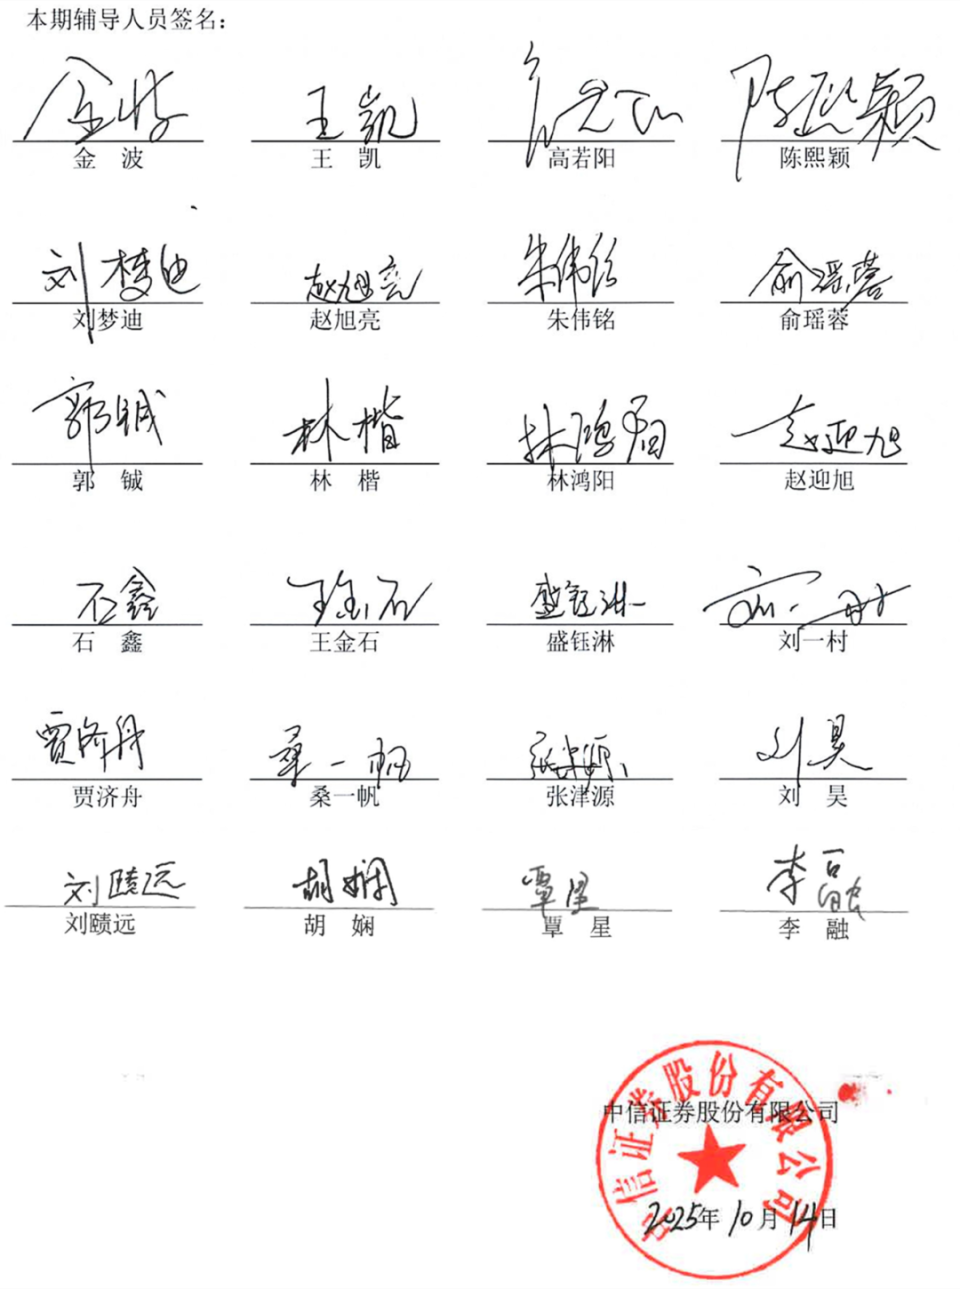 本期辅导人员签名：
金波 王凯 高若阳 陈熙颖
金 波 王 凯 高若阳 陈熙颖
刘梦迪 赵旭亮 朱伟铭 俞瑶蓉
刘梦迪 赵旭亮 朱伟铭 俞瑶蓉
郭铖 林楷 林鸿阳 赵迎旭
郭 铖 林 楷 林鸿阳 赵迎旭
石鑫 王金石 盛钰淋 刘一村
石 鑫 王金石 盛钰淋 刘一村
贾济舟 桑一帆 张津源 刘昊
贾济舟 桑一帆 张津源 刘 昊
刘赜远 胡娴 覃星 李融
刘赜远 胡 娴 覃 星 李 融
中信证券股份有限公司
中信证券股份有限公司
2025年10月14日